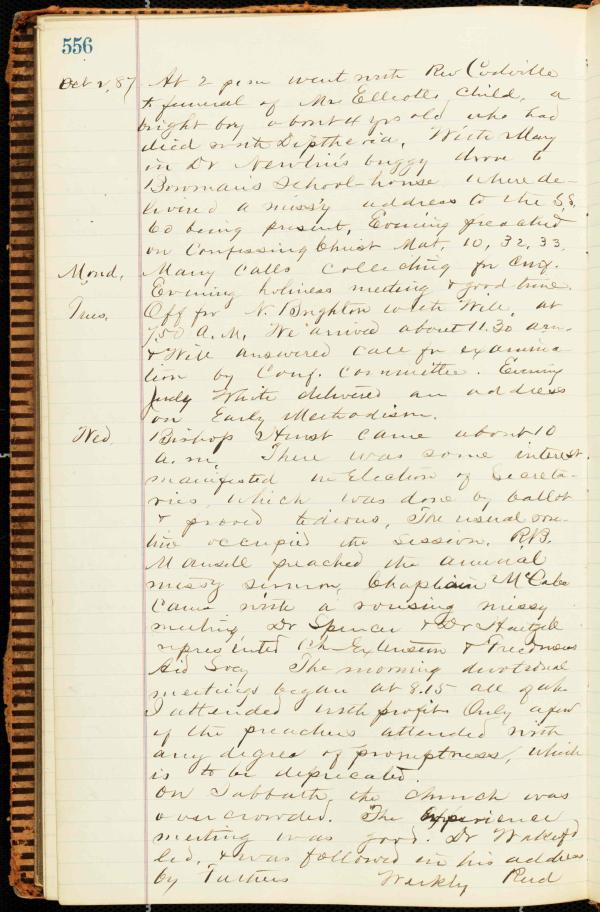 556
Oct 2, 87 At 2 p.m. went with Rev Codville
to funeral of Mr Elliotts Child, a
bright boy about 4 yrs old who had
died with Diptheria. With May
in Dr Newlin's buggy drove to
Bowman's School-house where de-
livered a miss'y address to the S.S.
60 being present, Evening preached
on Confessing Christ Mat. 10, 32, 33.
Mond. Many calls collecting for Conf.
Evening holiness meeting & good time
Tues. Off for N. Brighton with Will, at
7.50 A.M. We arrived about 11.30 am.
& Will answered call for examina-
tion by Conf. Committee. Evening
Judy White delivered an address
on Early Methodism.
Wed. Bishop Hurst came about 10
a.m. There was some interest
manifested in Election of Secreta-
ries which was done by ballot
& proved tedious, The usual rou-
tine occupied the session. R.B.
Mansell preached the annual
miss'y sermon, Chaplain McCabe
came with a rousing missy
meeting Dr Spencer & Dr Hartzell
represented Ch. Extension & Freedmens
Aid Socy The morning devotional
meetings began at 8.15 all of wh.
I attended with profit. Only a few
of the preachers attended with
any degree of promptness, which
is to be depricated.
On Sabbath, the church was
overcrowded. The Experience
meeting was good. Dr Wakefd
led, & was followed in his address
by Fathers Weekly Reid